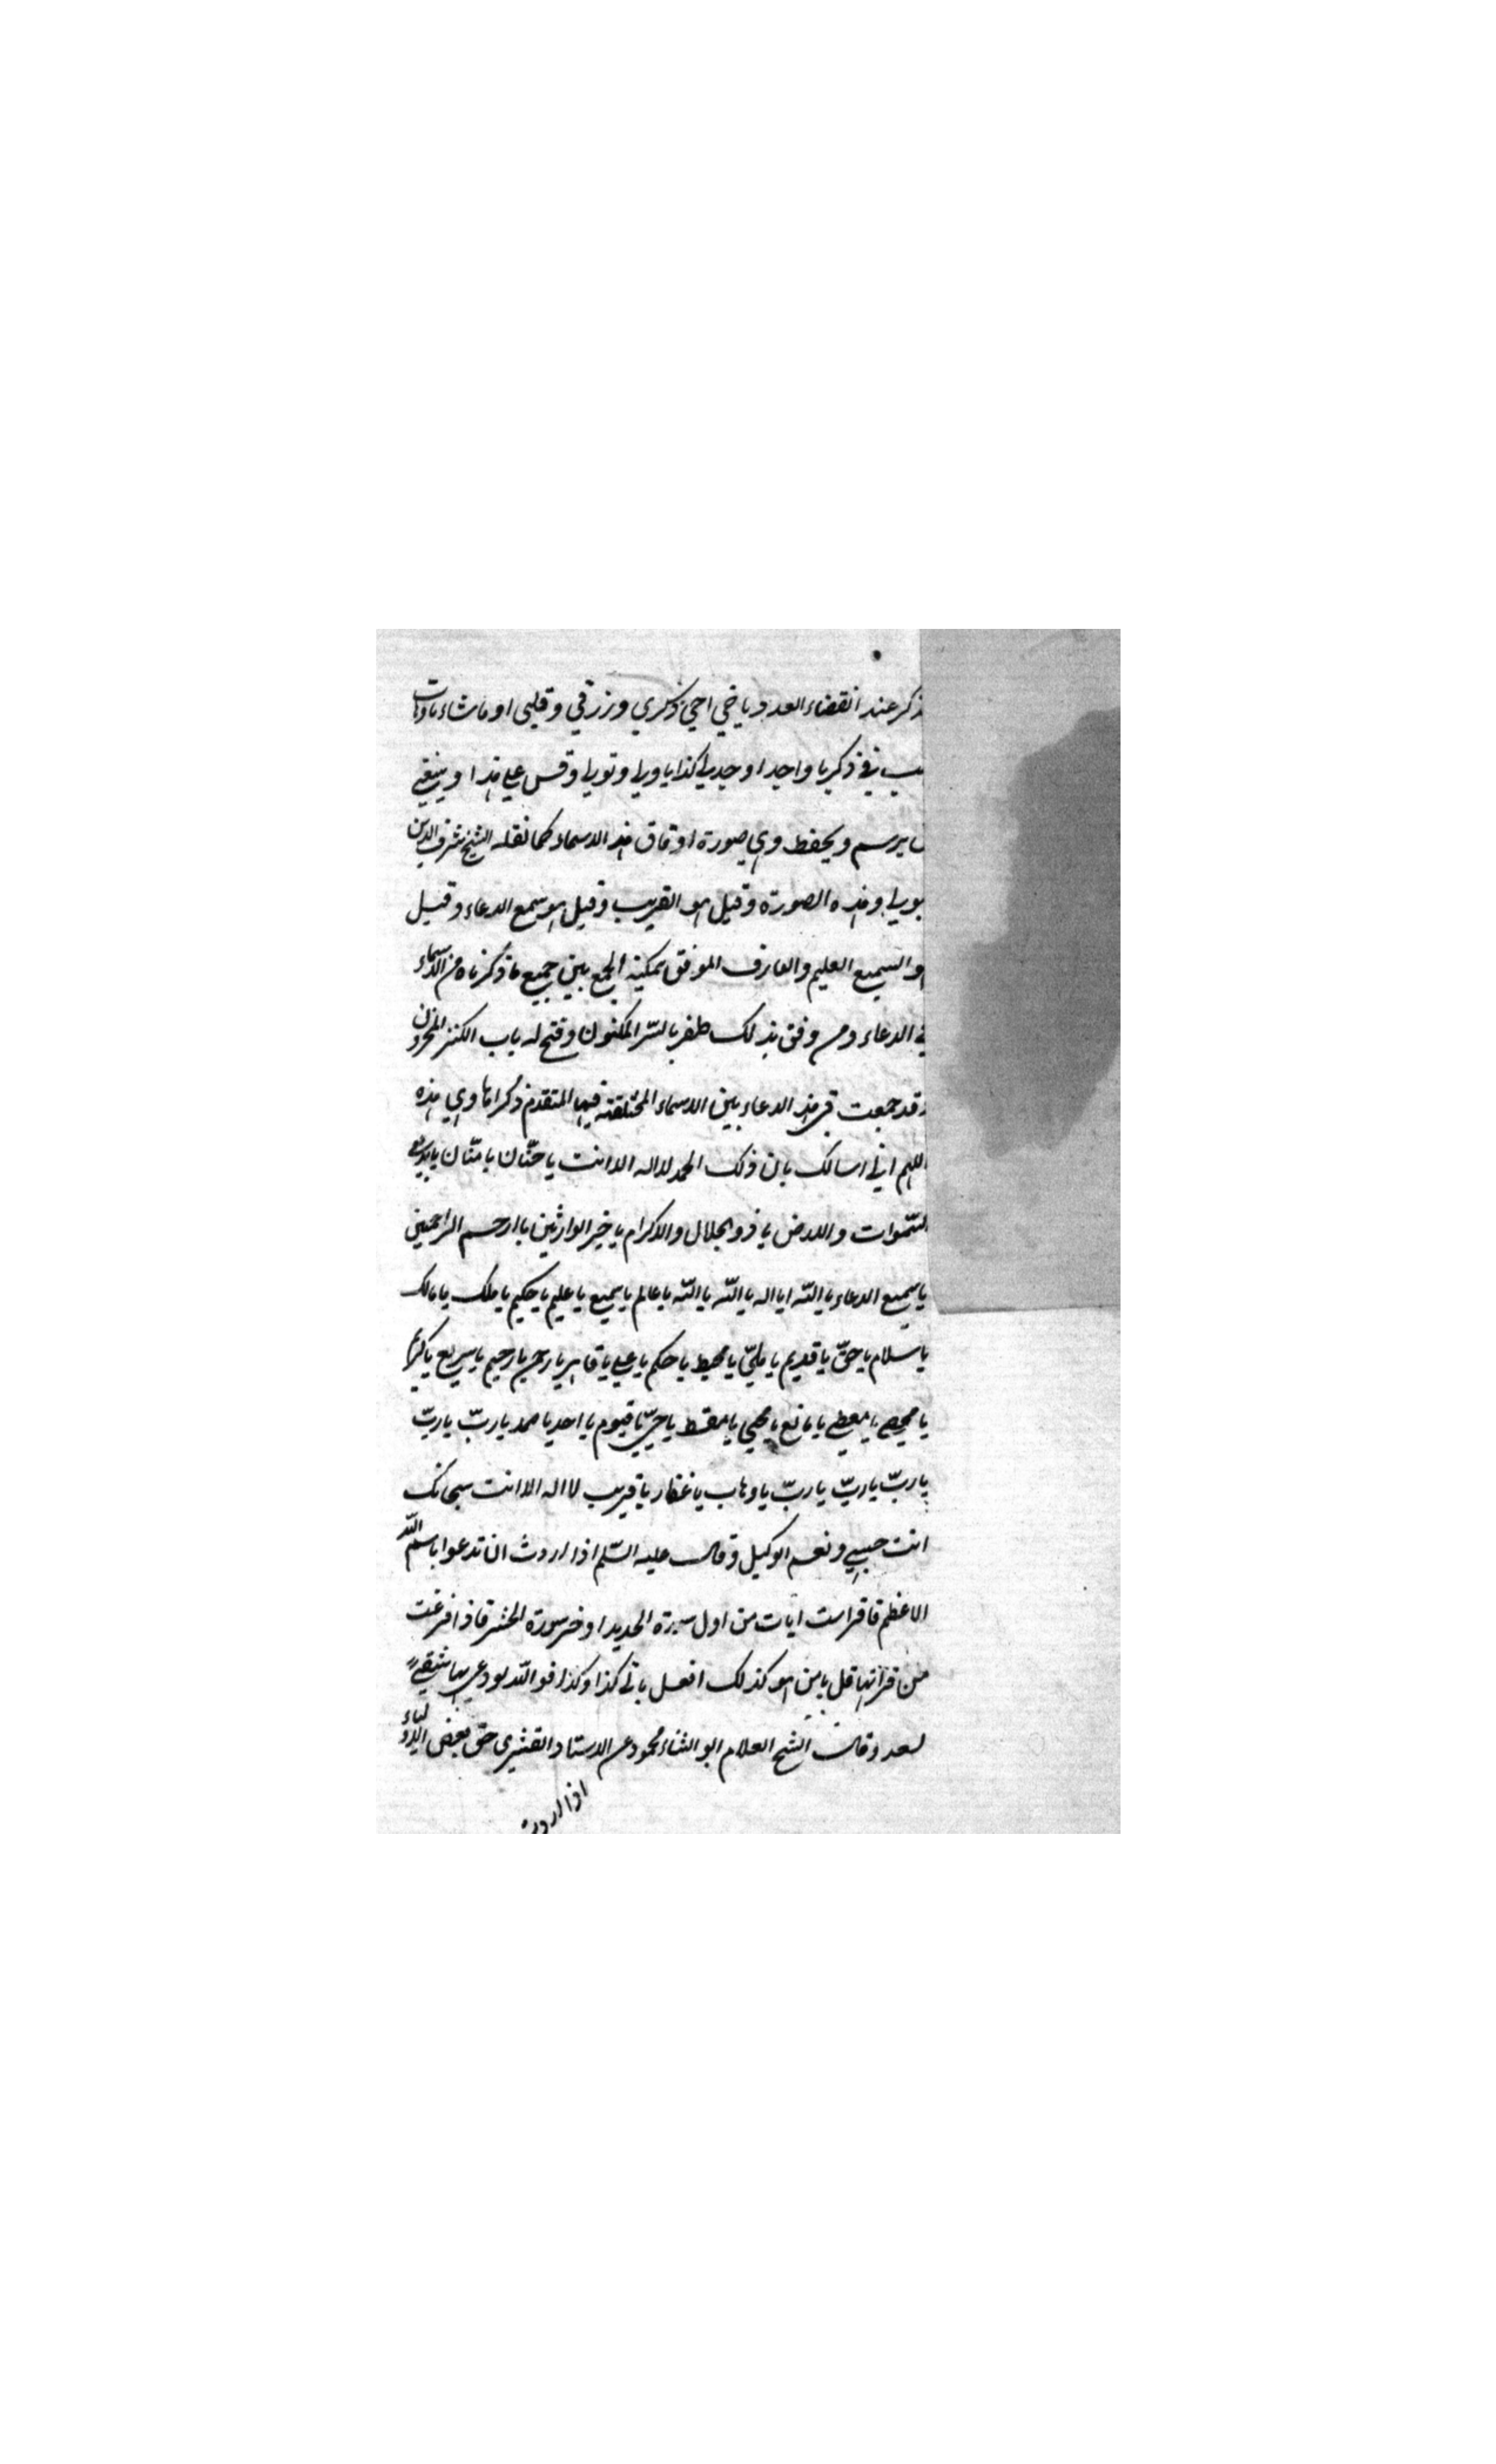 ذكر عند انقضاء العدد يا حي احي ذكري ورزقي وقلبي او ما شاء
في ذكر يا واحد اوجد لي كذا يا ولي وتولي وقس علي هذا وينبغي
يرسم ويحفظ وهي صورة اوفاق هذه الاسماء كما نقله الشيخ شرف الدين
وهذه الصورة وقيل هو القريب وقيل هو سميع الدعاء وقيل
هو السميع العليم والعارف الموفق يمكنه الجمع بين جميع ما ذكرناه من الاسماء
في الدعاء ومن وفق بذلك ظفر بالسّر المكنون وفتح له باب الكنز المخزون
وقد جمعت في هذا الدعاء بين الاسماء المختلفة فيها المتقدم ذكراها وهي هذه
اللهم اني اسالك بان لك الحمد لا اله الا انت يا حنّان يا منّان يا بديع
السّموات والارض يا ذو الجلال والاكرام يا خير الوارثين يا ارحم الراحمين
يا سميع الدعاء يا اللّه يا اله يا اللّه يا اللّه يا عالم يا سميع يا عليم يا حكيم يا ملك يا مالك
يا سلام يا حقّ يا قديم يا مليّ يا محيط يا حكم يا علي يا قاهر يا رحمن يا رحيم يا سريع يا كريم
يا محصي يا معطي يا مانع يا محيي يا مقسط يا حيّ يا قيوم يا احد يا صمد يا ربّ يا ربّ
يا ربّ يا ربّ يا ربّ يا وهاب يا غفار يا قريب لا اله الا انت سبحانك
انت حسبي ونعم الوكيل وقال عليه السّلم اذا اردت ان تدعوا باسم اللّه
الاعظم فاقرا ست ايات من اول سورة الحديد اوخر سورة الحشر فاذا فرغت
من قراتها قل يا من هو كذلك افعل بي كذا وكذا فو اللّه لو دعي بها شقي
لسعد وقال الشيخ العلام ابو الثناء محمود عن الاستاد القشيري حق بعض الاولياء
اذا اردت